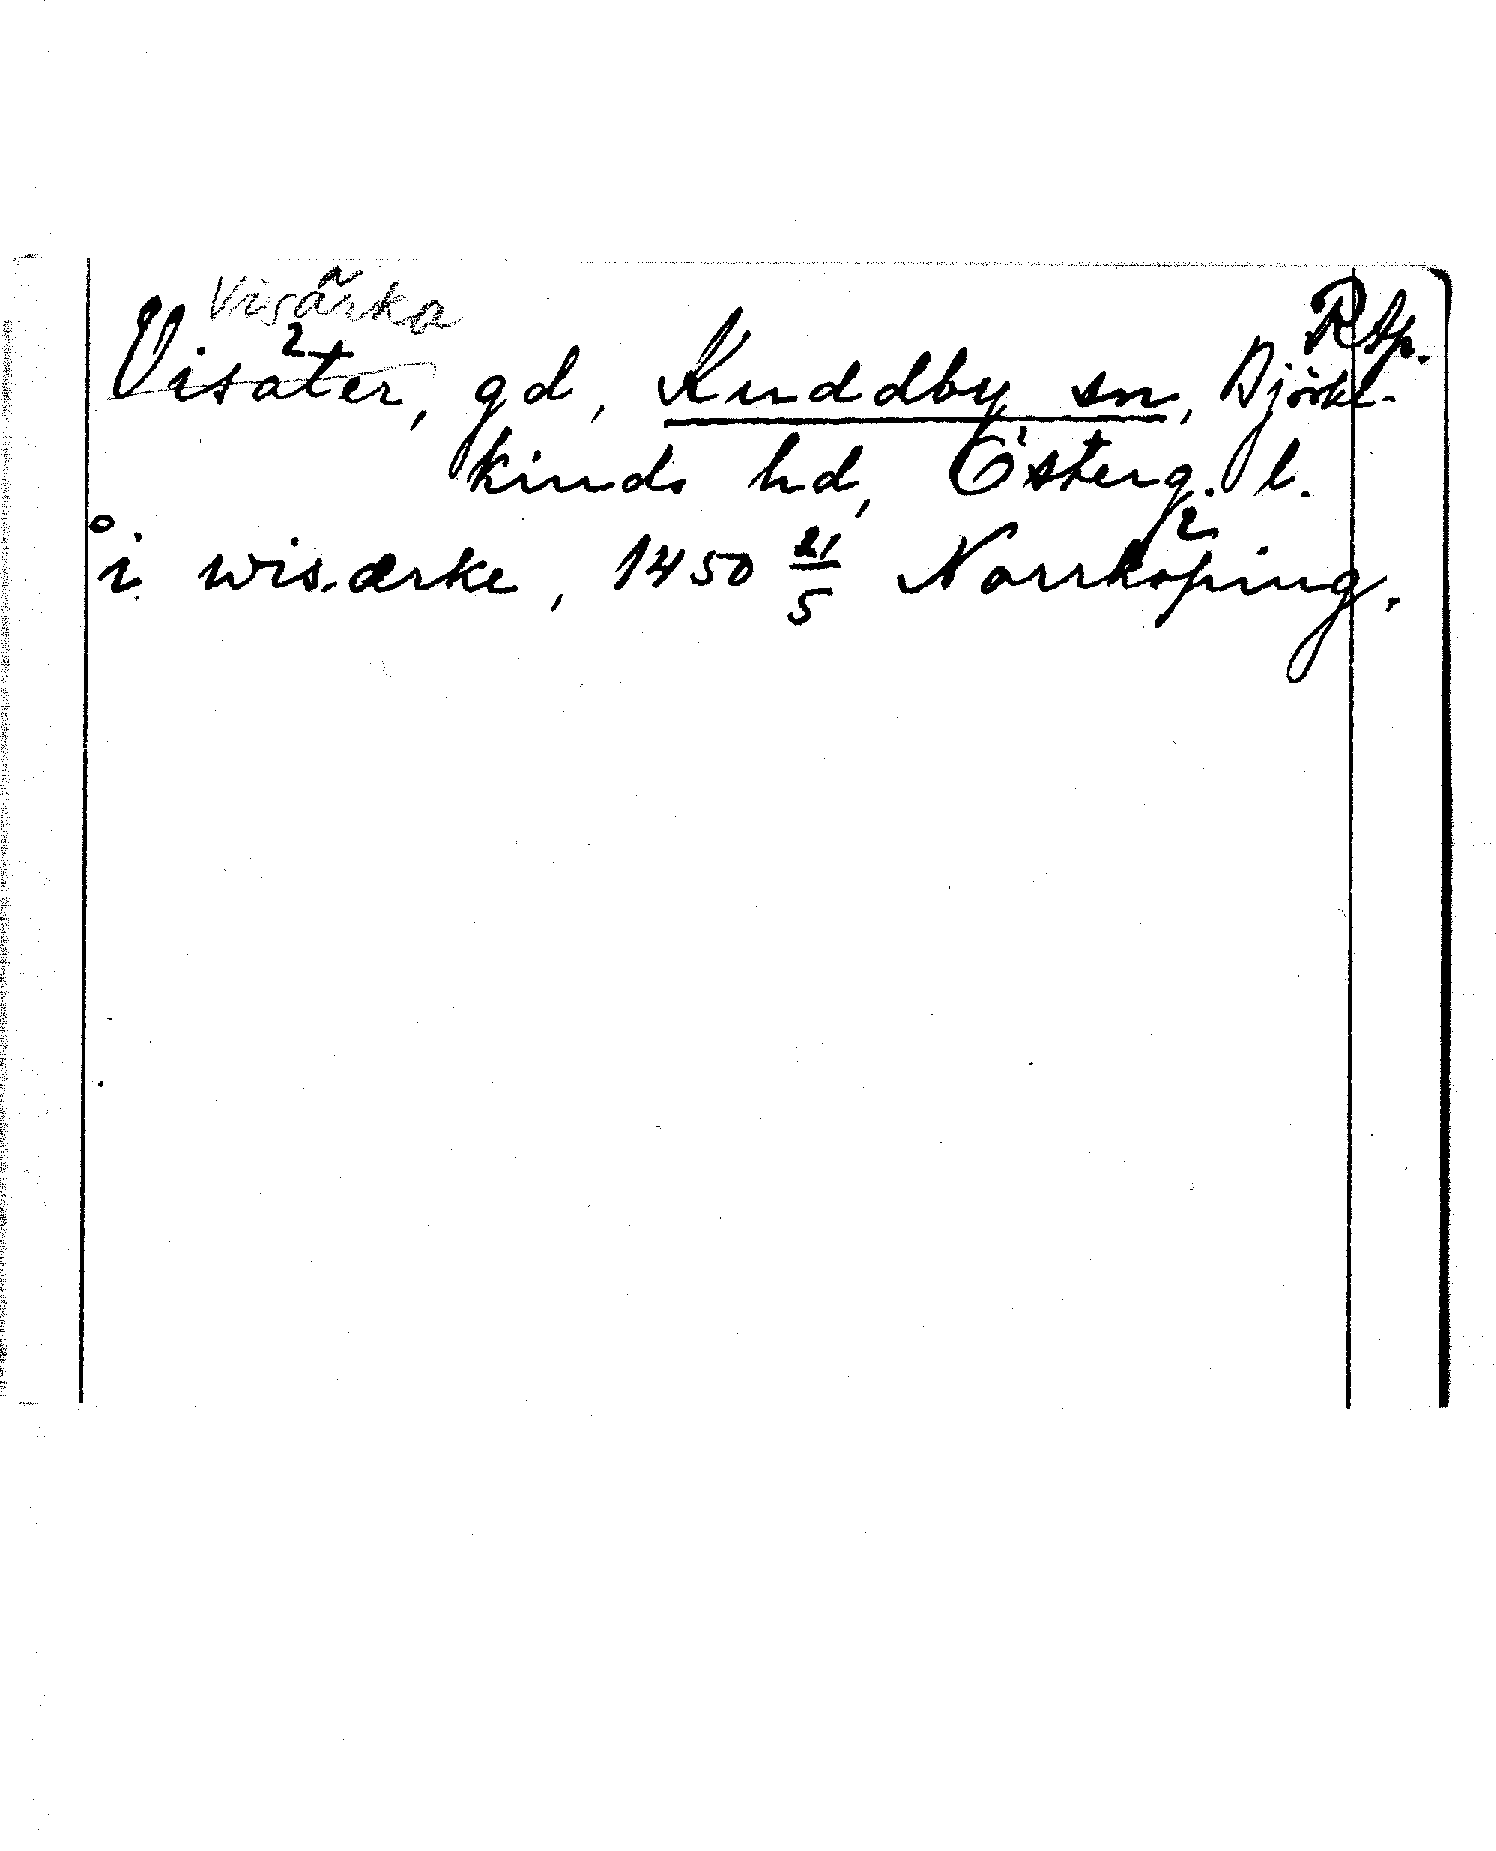 Visärka
R Ap.
Visäter, gd, Kuddby sn, Björke-
kinds hd, Österg. l.
i wisærke, 1450 21/5 Norrköping.